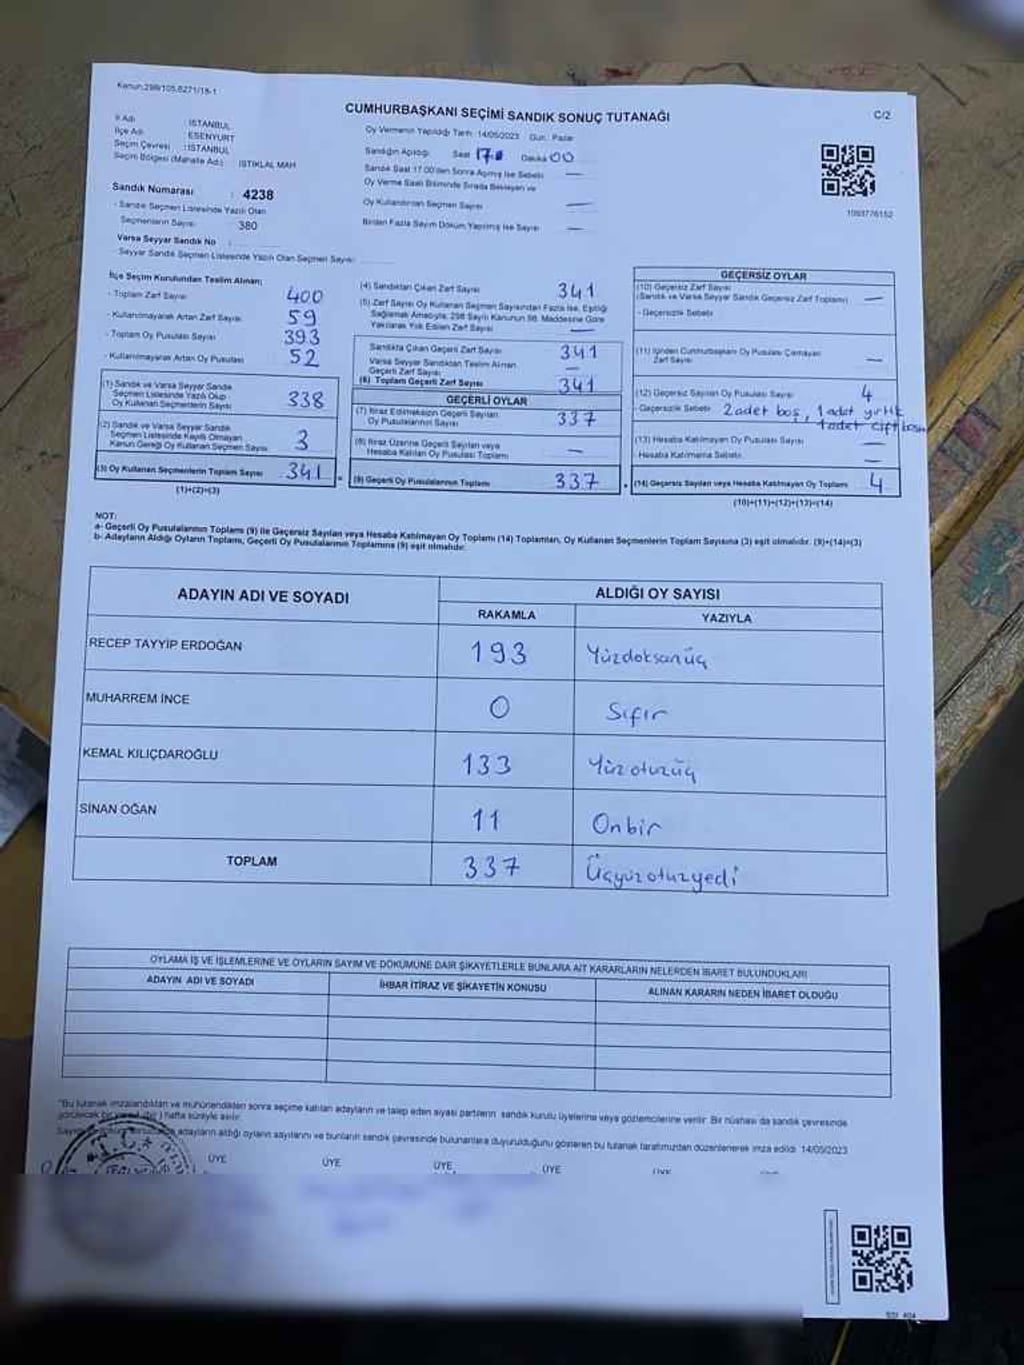 Kanun:298/105,6271/18-1
CUMHURBAŞKANI SEÇİMİ SANDIK SONUÇ TUTANAĞI
C/2
İl Adı : İSTANBUL
İlçe Adı : ESENYURT
Seçim Çevresi : İSTANBUL
Seçim Bölgesi (Mahalle Adı) : İSTİKLAL MAH
Sandık Numarası : 4238
- Sandık Seçmen Listesinde Yazılı Olan
Seçmenlerin Sayısı 380
Varsa Seyyar Sandık No :
Seyyar Sandık Seçmen Listesinde Yazılı Olan Seçmen Sayısı
Oy Vermenin Yapıldığı Tarih: 14/05/2023 Gün: Pazar
Sandığın Açıldığı Saat 17 Dakika 00
Sandık Saat 17.00'den Sonra Açılmış İse Sebebi —
Oy Verme Saati Bitiminde Sırada Bekleyen ve
Oy Kullandırılan Seçmen Sayısı —
Birden Fazla Sayım Döküm Yapılmış İse Sayısı —
1093776152
İlçe Seçim Kurulundan Teslim Alınan;
- Toplam Zarf Sayısı 400
- Kullanılmayarak Artan Zarf Sayısı 59
- Toplam Oy Pusulası Sayısı 393
- Kullanılmayarak Artan Oy Pusulası 52
(1) Sandık ve Varsa Seyyar Sandık
Seçmen Listesinde Yazılı Olup
Oy Kullanan Seçmenlerin Sayısı 338
(2) Sandık ve Varsa Seyyar Sandık
Seçmen Listesinde Kayıtlı Olmayan
Kanun Gereği Oy Kullanan Seçmen Sayısı 3
(3) Oy Kullanan Seçmenlerin Toplam Sayısı 341
(1)+(2)=(3)
(4) Sandıktan Çıkan Zarf Sayısı 341
(5) Zarf Sayısı Oy Kullanan Seçmen Sayısından Fazla İse, Eşitliği
Sağlamak Amacıyla, 298 Sayılı Kanunun 98. Maddesine Göre
Yakılarak Yok Edilen Zarf Sayısı —
Sandıkta Çıkan Geçerli Zarf Sayısı 341
Varsa Seyyar Sandıktan Teslim Alınan
Geçerli Zarf Sayısı —
(6) Toplam Geçerli Zarf Sayısı 341
GEÇERLİ OYLAR
(7) İtiraz Edilmeksizin Geçerli Sayılan
Oy Pusulalarının Sayısı 337
(8) İtiraz Üzerine Geçerli Sayılan veya
Hesaba Katılan Oy Pusulası Toplamı —
= (9) Geçerli Oy Pusulalarının Toplamı 337
GEÇERSİZ OYLAR
(10) Geçersiz Zarf Sayısı
(Sandık ve Varsa Seyyar Sandık Geçersiz Zarf Toplamı) —
- Geçersizlik Sebebi:
(11) İçinden Cumhurbaşkanı Oy Pusulası Çıkmayan
Zarf Sayısı —
(12) Geçersiz Sayılan Oy Pusulası Sayısı 4
- Geçersizlik Sebebi: 2 adet boş, 1 adet yırtık
1 adet çift basım
(13) Hesaba Katılmayan Oy Pusulası Sayısı —
- Hesaba Katılmama Sebebi: —
+ (14) Geçersiz Sayılan veya Hesaba Katılmayan Oy Toplamı 4
(10)+(11)+(12)+(13)=(14)
NOT:
a- Geçerli Oy Pusulalarının Toplamı (9) ile Geçersiz Sayılan veya Hesaba Katılmayan Oy Toplamı (14) Toplamları, Oy Kullanan Seçmenlerin Toplam Sayısına (3) eşit olmalıdır. (9)+(14)=(3)
b- Adayların Aldığı Oyların Toplamı, Geçerli Oy Pusulalarının Toplamına (9) eşit olmalıdır.
ADAYIN ADI VE SOYADI
ALDIĞI OY SAYISI
RAKAMLA YAZIYLA
RECEP TAYYİP ERDOĞAN 193 Yüzdoksanüç
MUHARREM İNCE 0 Sıfır
KEMAL KILIÇDAROĞLU 133 Yüzotuzüç
SİNAN OĞAN 11 Onbir
TOPLAM 337 Üçyüzotuzyedi
OYLAMA İŞ VE İŞLEMLERİNE VE OYLARIN SAYIM VE DÖKÜMÜNE DAİR ŞİKAYETLERLE BUNLARA AİT KARARLARIN NELERDEN İBARET BULUNDUKLARI
ADAYIN ADI VE SOYADI İHBAR İTİRAZ VE ŞİKAYETİN KONUSU ALINAN KARARIN NEDEN İBARET OLDUĞU
"Bu tutanak imzalandıktan ve mühürlendikten sonra seçime katılan adayların ve talep eden siyasi partilerin sandık kurulu üyelerine veya gözlemcilerine verilir. Bir nüshası da sandık çevresinde
görülecek bir yere (bir) hafta süreyle asılır.
adayların aldığı oyların sayılarını ve bunların sandık çevresinde bulunanlara duyurulduğunu gösteren bu tutanak tarafımızdan düzenlenerek imza edildi. 14/05/2023
T.C.
ÜYE ÜYE ÜYE ÜYE ÜYE